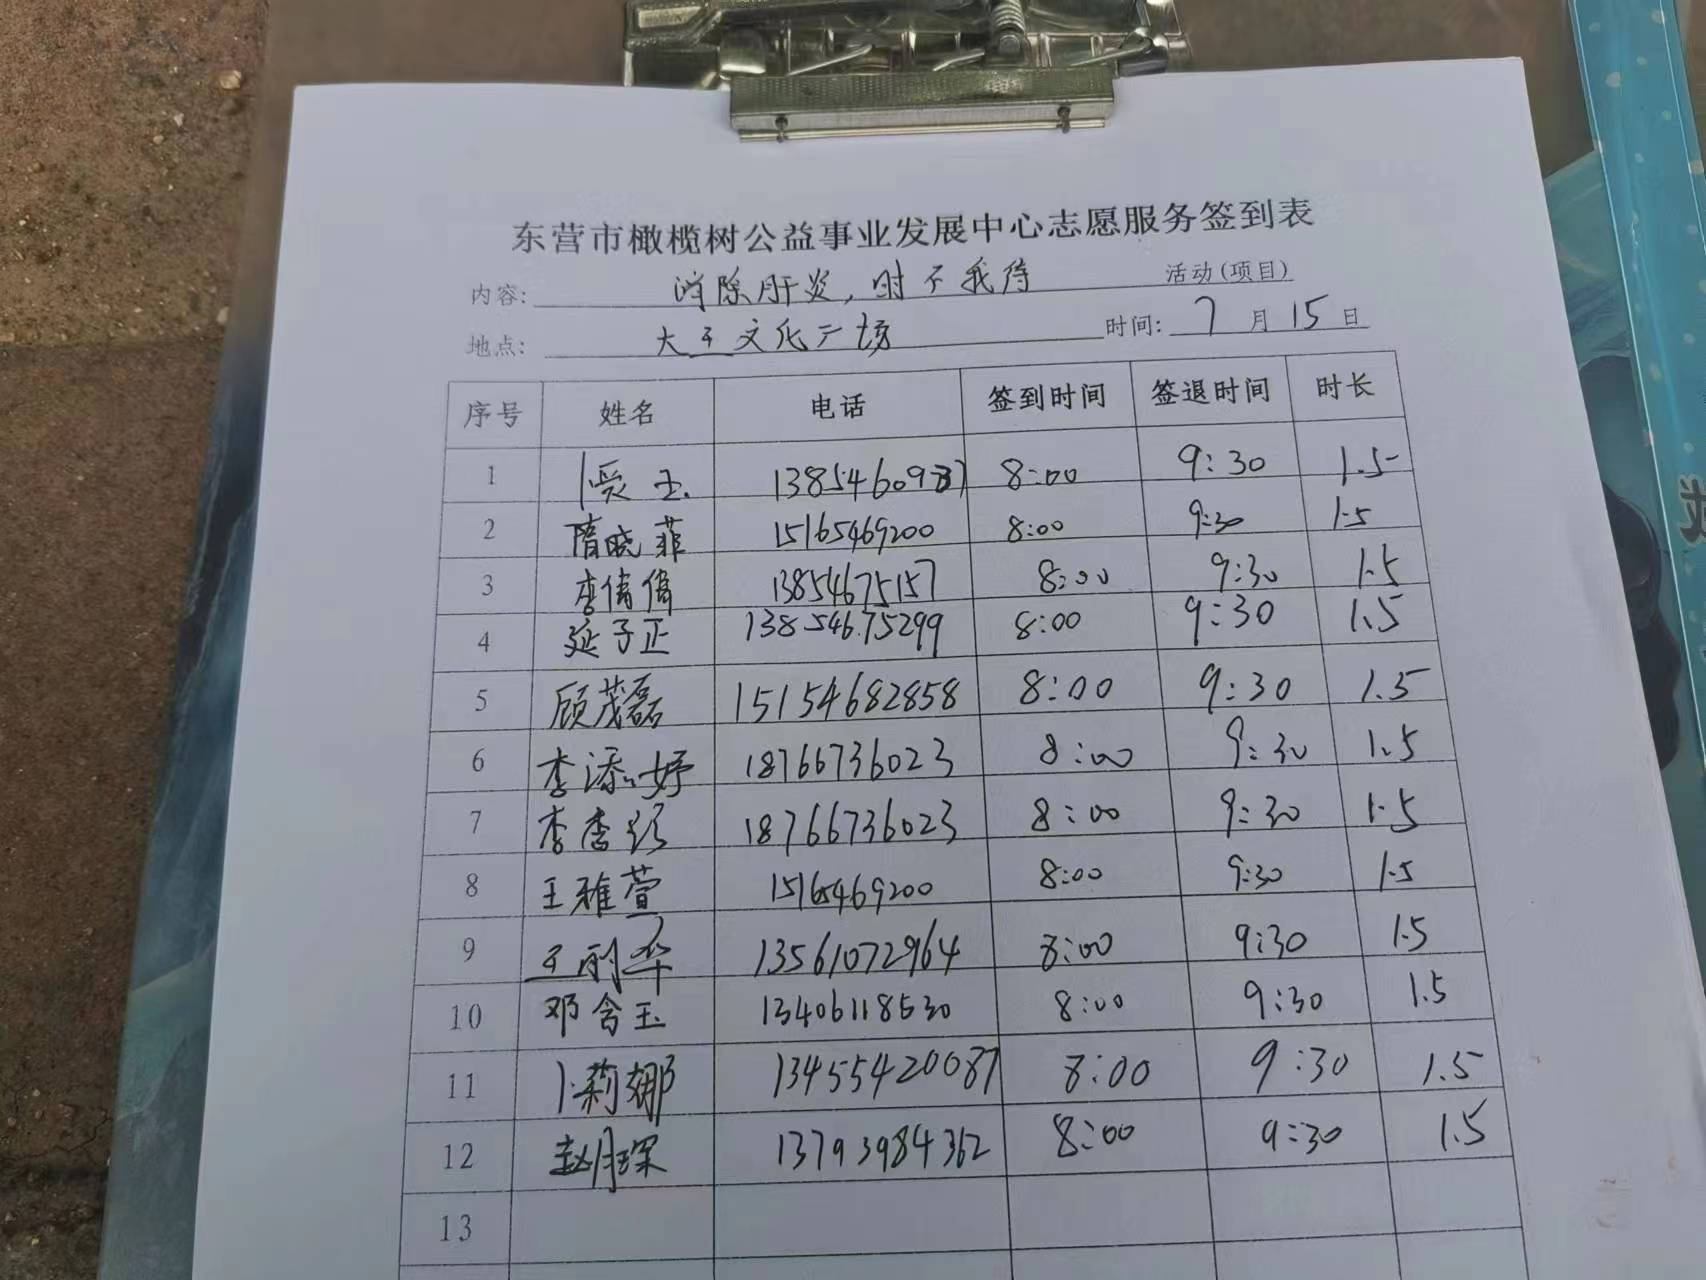 东营市橄榄树公益事业发展中心志愿服务签到表
内容: 消除肝炎,时不我待 活动(项目)
地点: 大王文化广场 时间: 7月15日
序号 姓名 电话 签到时间 签退时间 时长
1 玉 8:00 9:30 1.5
2 隋晓菲 15165469200 8:00 9:30 1.5
3 李倩倩 13854675157 8:00 9:30 1.5
4 延子正 13854675299 8:00 9:30 1.5
5 顾茂磊 15154682858 8:00 9:30 1.5
6 李添婷 18766736023 8:00 9:30 1.5
7 李 18766736023 8:00 9:30 1.5
8 王雅萱 15165469200 8:00 9:30 1.5
9 王丽华 13561072964 8:00 9:30 1.5
10 邓含玉 13406118530 8:00 9:30 1.5
11 卜莉娜 13455420087 8:00 9:30 1.5
12 赵月琛 13793984362 8:00 9:30 1.5
13